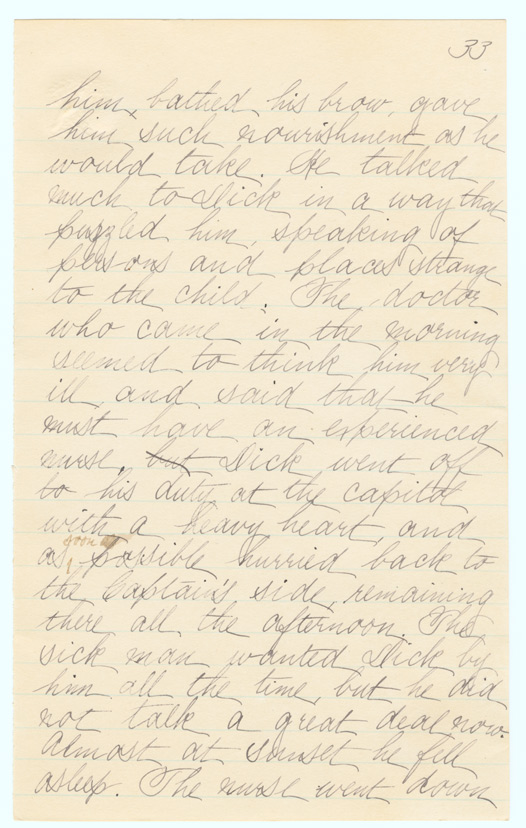 33
him, bathed his brow, gave
him such nourishment as he
would take. He talked
much to Dick in a way that
puzzled him, speaking of
persons and places strange
to the child. The doctor
who came in the morning
seemed to think him very
ill, and said that he
must have an experienced
nurse. but Dick went off
to his duty at the capitol
with a heavy heart, and
soon as
as possible hurried back to
the Captain's side, remaining
there all the afternoon. The
sick man wanted Dick by
him all the time, but he did
not talk a great deal now.
Almost at sunset he fell
asleep. The nurse went down